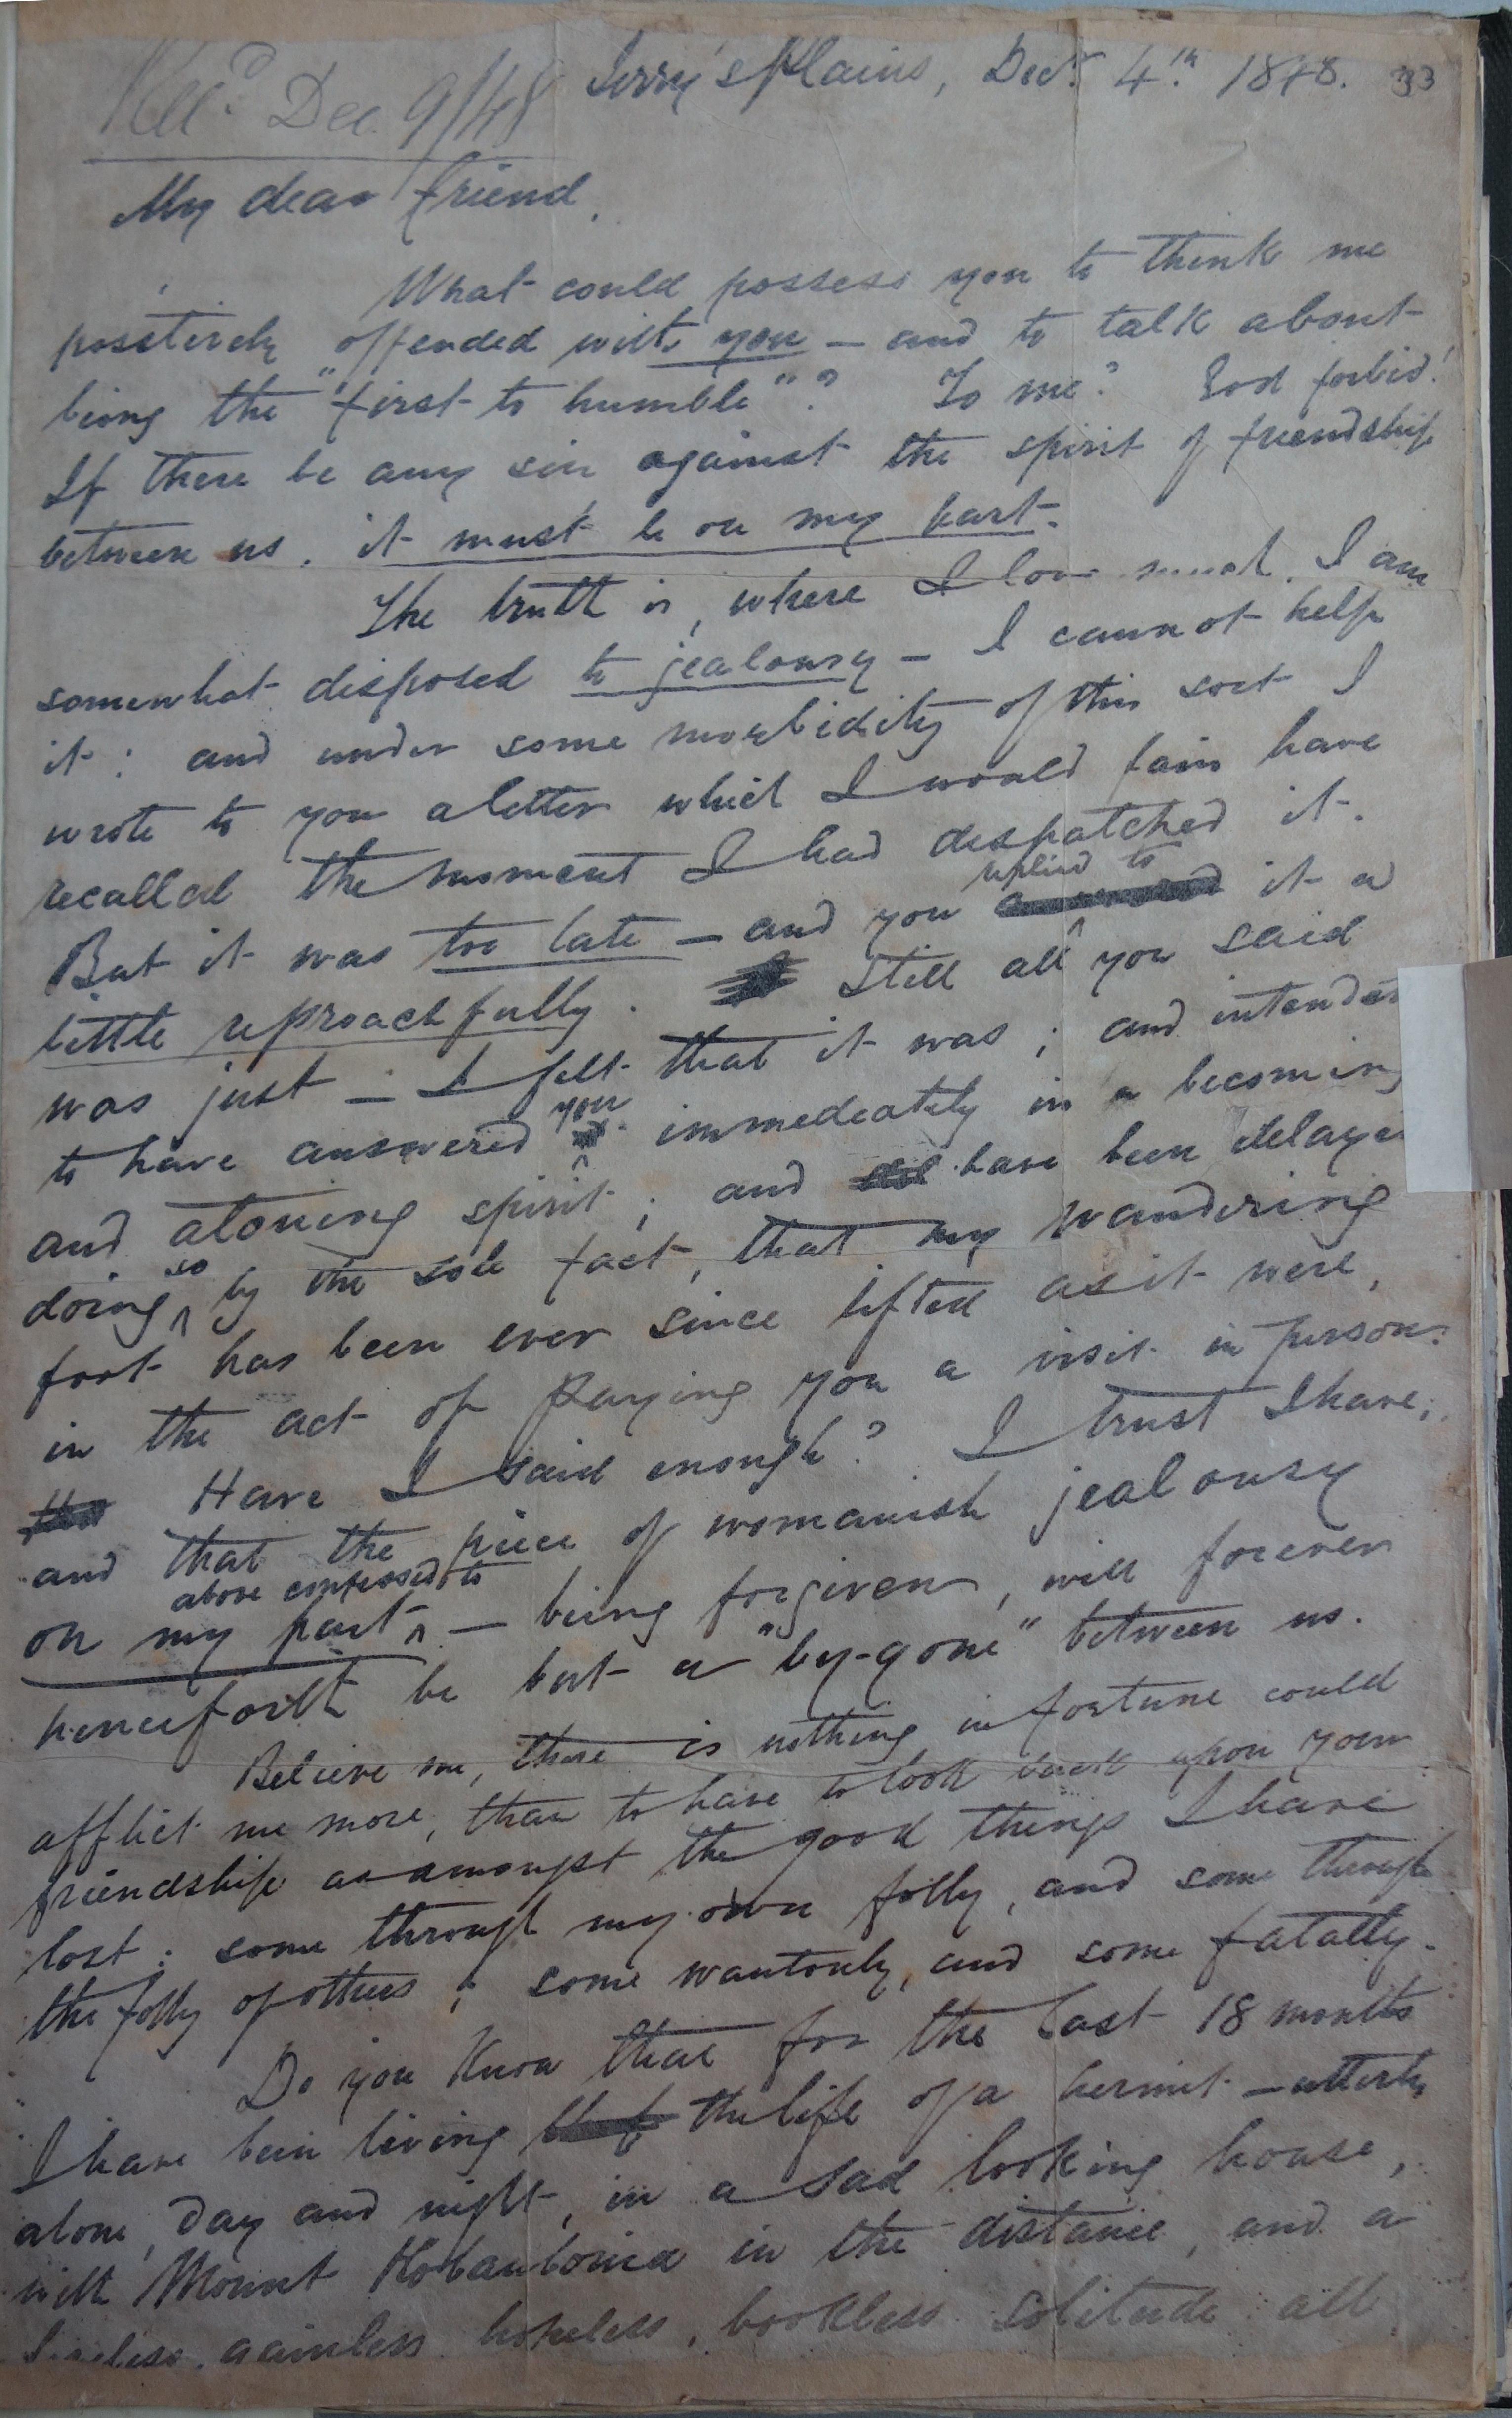 Rec^d Dec. 9/48
Jerry's Plains, Dec^r. 4^th. 1848. 33
My dear friend.
What could possess you to think me
positively offended with you — and to talk about
being the "first to humble"? To me? God forbid!
If there be any sin against the spirit of friendship
between us, it must be on my part.
The truth is, where I love much, I am
somewhat disposed to jealousy — I cannot help
it: and under some morbidity of this sort I
wrote to you a letter which I would fain have
recalled the moment I had dispatched it.
replied to
But it was too late — and you it a
little reproachfully. Still all you said
was just — I felt that it was; and intended
to have answered you immediately in a becoming
and atoning spirit; and have been delayed
doing so by the sole fact, that my wandering
foot has been ever since lifted as it were,
in the act of paying you a visit in person.
Have I said enough? I trust I have;
and that the piece of womanish jealousy
above confessed to
on my part — being forgiven, will forever
henceforth be but a "by-gone" between us.
Believe me, there is nothing in fortune could
afflict me more, than to have to look back upon your
friendship as amongst the good things I have
lost: some through my own folly, and some through
the folly of others; some wantonly, and some fatally.
Do you know that for the last 18 months
I have been living the life of a hermit — utterly
alone, day and night, in a sad looking house,
with Mount in the distance, and a
gainless, hopeless, bookless solitude all